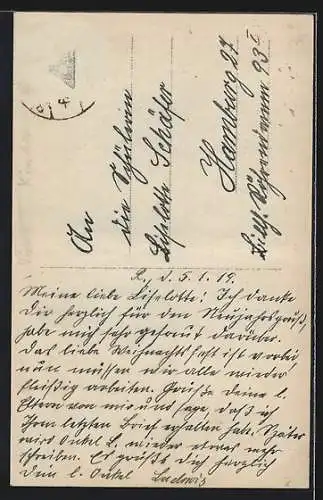 An
die Schülerin
Liselotte Schäfer
Hamburg 27
Billh. Röhrendamm 93 I
d. 5. 1. 19.
Meine liebe Liselotte! Ich danke
Dir herzlich für den Neujahrsgruß,
habe mich sehr gefreut darüber.
Das liebe Weihnachtsfest ist vorbei
nun müssen wir alle wieder
fleißig arbeiten. Grüße deine l.
Eltern von mir und sage, daß ich
Ihren letzten Brief erhalten habe. Später
wird Onkel L. wieder etwas mehr
schreiben. Es grüßt dich herzlich
dein l. Onkel Ludwig